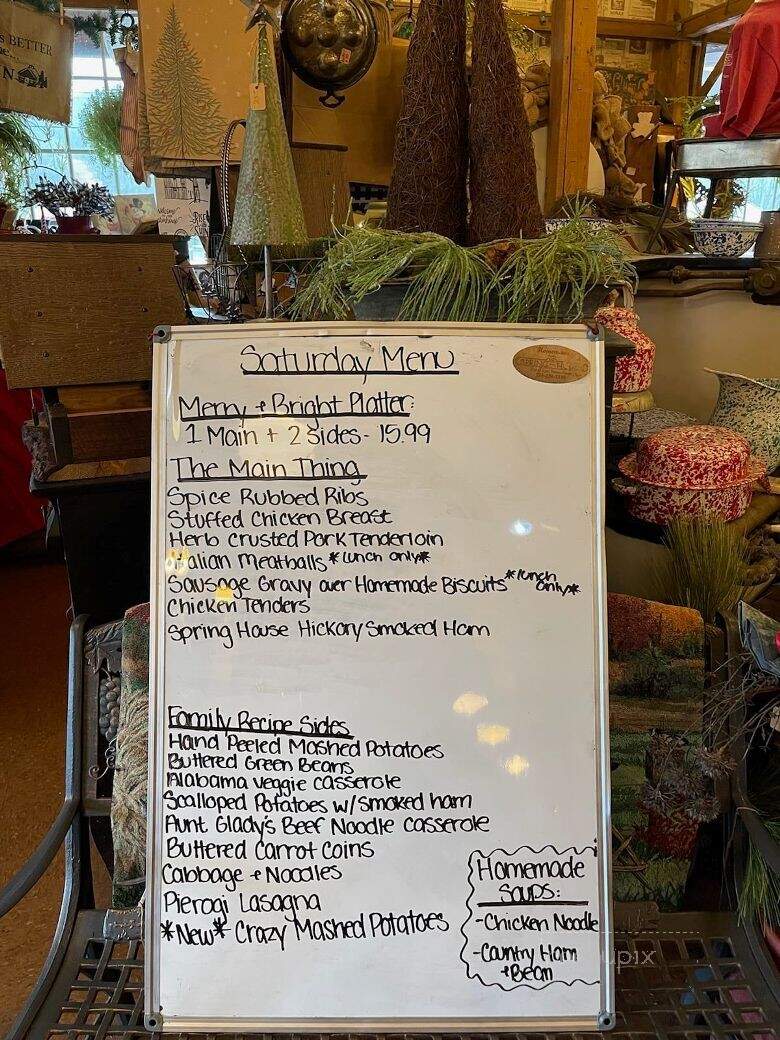 BETTER
Saturday Menu
Merry + Bright Platter:
1 Main + 2 sides- 15.99
The Main Thing
Spice Rubbed Ribs
Stuffed Chicken Breast
Herb Crusted Pork Tenderloin
Italian Meatballs *lunch only*
Sausage Gravy over Homemade Biscuits *lunch only*
Chicken Tenders
Spring House Hickory Smoked Ham
Family Recipe Sides
Hand Peeled Mashed Potatoes
Buttered Green Beans
Alabama Veggie Casserole
Scalloped Potatoes w/ smoked ham
Aunt Glady's Beef Noodle Casserole
Buttered Carrot Coins
Cabbage + Noodles
Pierogi Lasagna
*New* Crazy Mashed Potatoes
Homemade
Soups:
-Chicken Noodle
-Country Ham
+ Bean